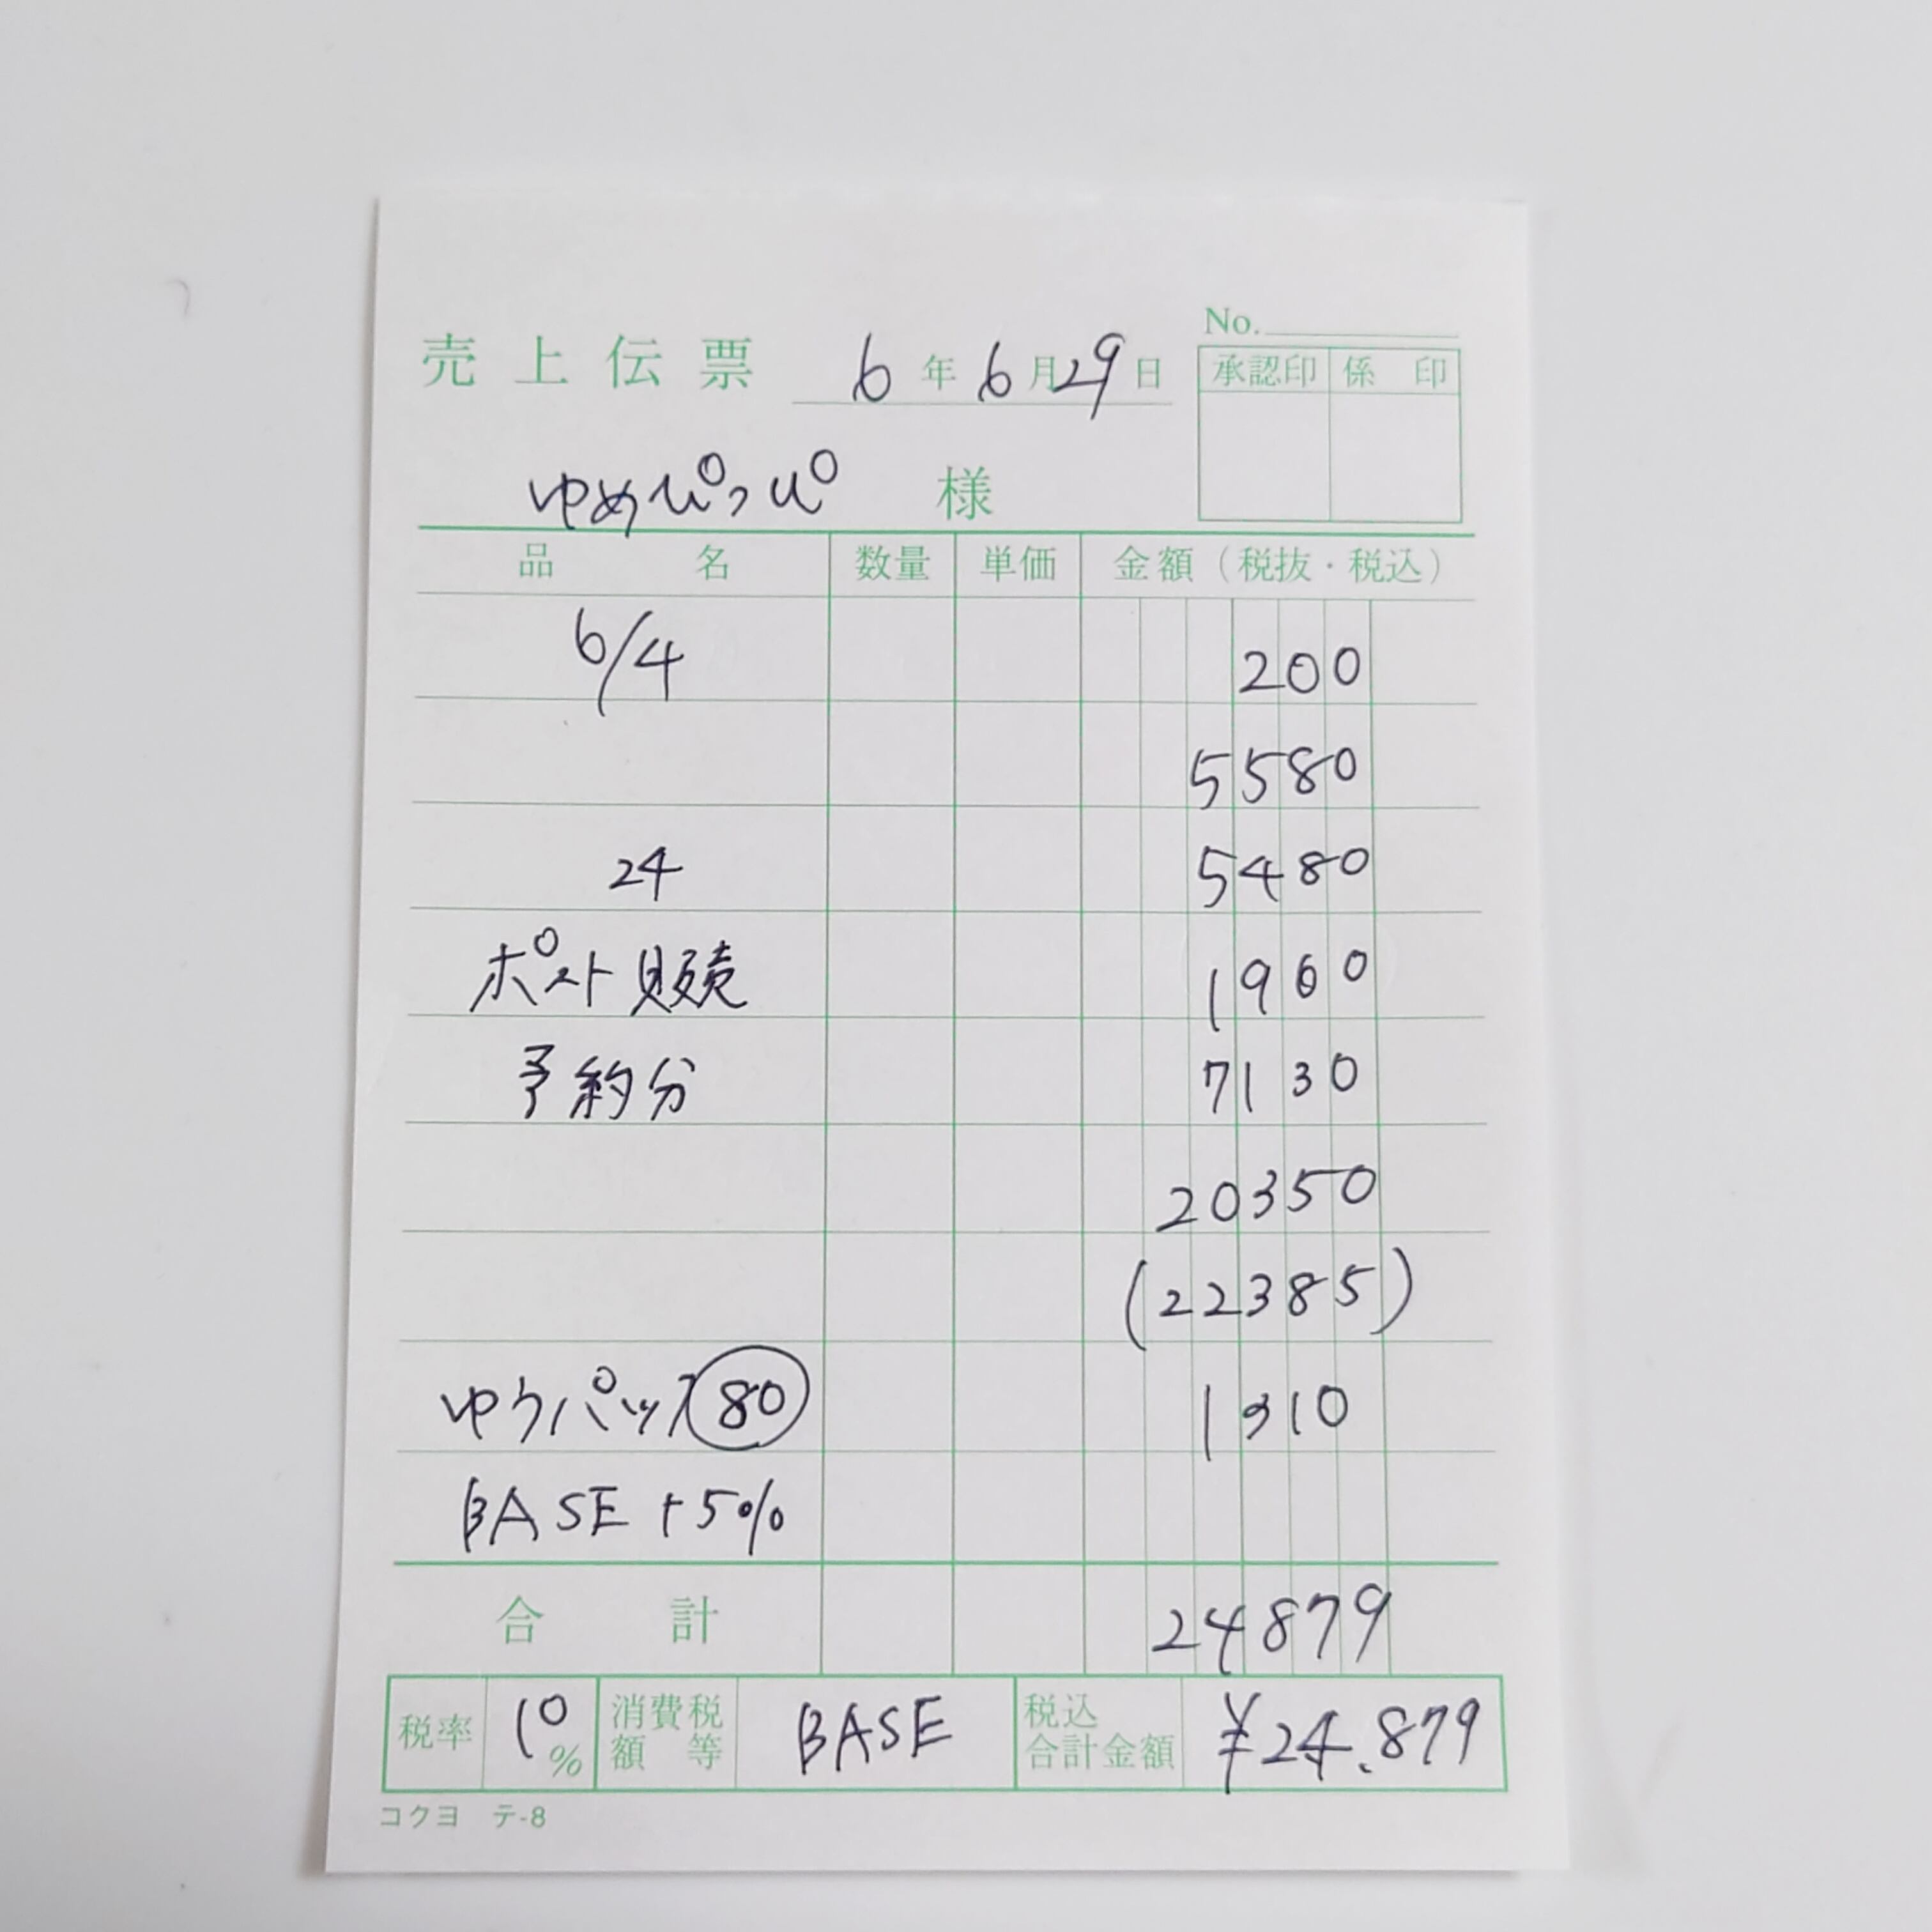 No.
売上伝票 6年6月29日
承認印 係印
ゆめぴっぴ 様
品名 数量 単価 金額（税抜・税込）
6/4 200
5580
24 5480
ポスト販売 1960
予約分 7130
20350
(22385)
ゆうパック 80 1310
BASE +5%
合計 24879
税率 10% 消費税額等 BASE 税込合計金額 ¥24.879
コクヨ テ-8